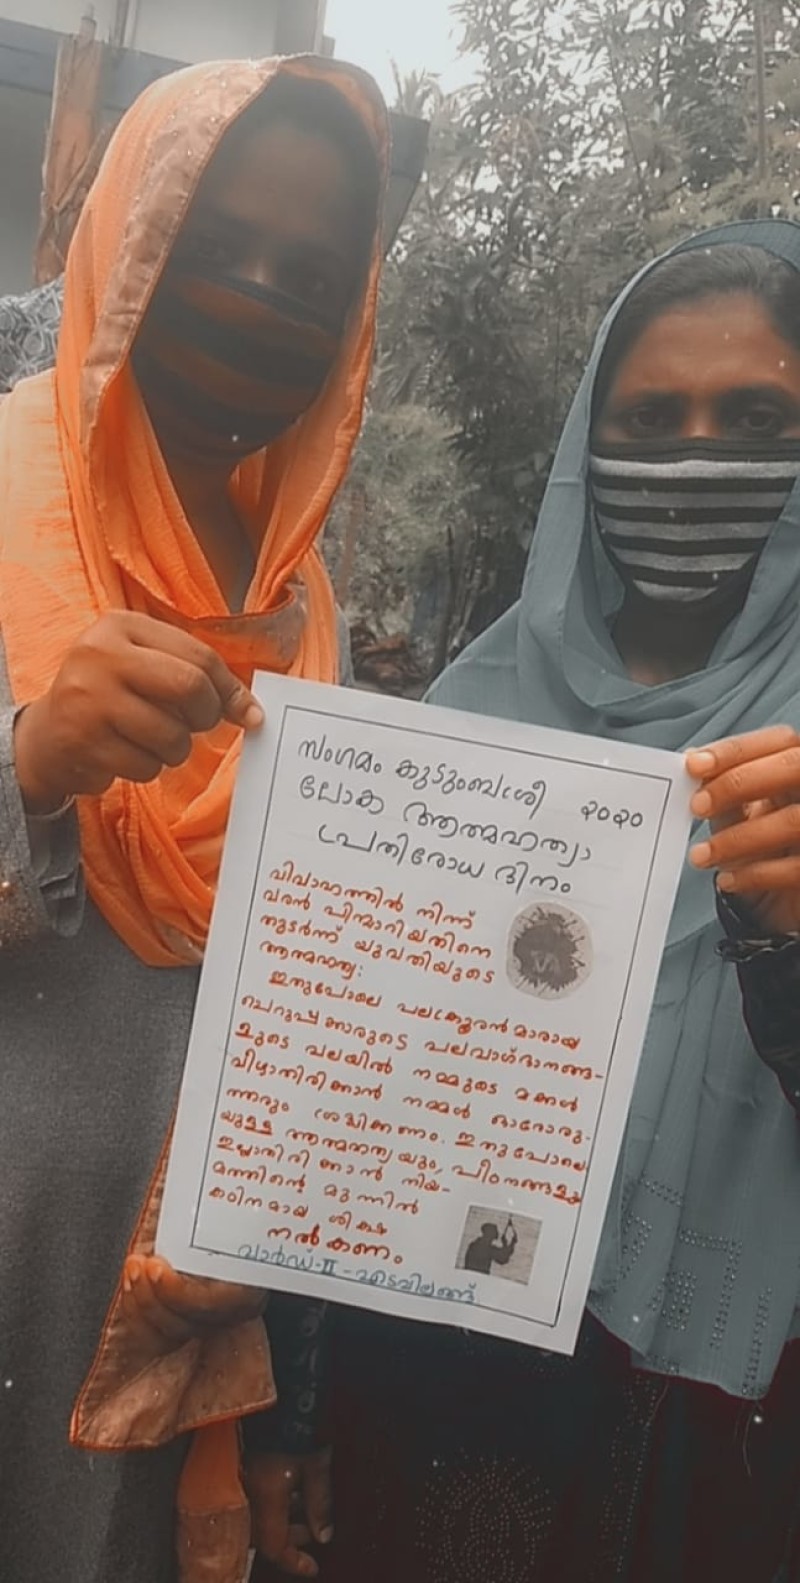 സംഗമം കുടുംബശ്രീ ൨൦൨൦
ലോക ആത്മഹത്യാ
പ്രതിരോധ ദിനം
വിവാഹത്തിൽ നിന്ന്
വരൻ പിന്മാറിയതിനെ
തുടർന്ന് യുവതിയുടെ
ആത്മഹത്യ:
ഇതുപോലെ പല ക്രൂരൻമാരായ
ചെറുപ്പക്കാരുടെ പല വാഗ്ദാനങ്ങ-
ളുടെ വലയിൽ നമ്മുടെ മക്കൾ
വീഴാതിരിക്കാൻ നമ്മൾ ഓരോരു-
ത്തരും ശ്രദ്ധിക്കണം. ഇതുപോലെ
യുള്ള ആത്മഹത്യയും, പീഠനങ്ങളും
ഇല്ലാതിരിക്കാൻ നിയ-
മത്തിന്റെ മുന്നിൽ
കഠിനമായ ശിക്ഷ
നൽകണം
വാർഡ്-II - എടവിലങ്ങ്.